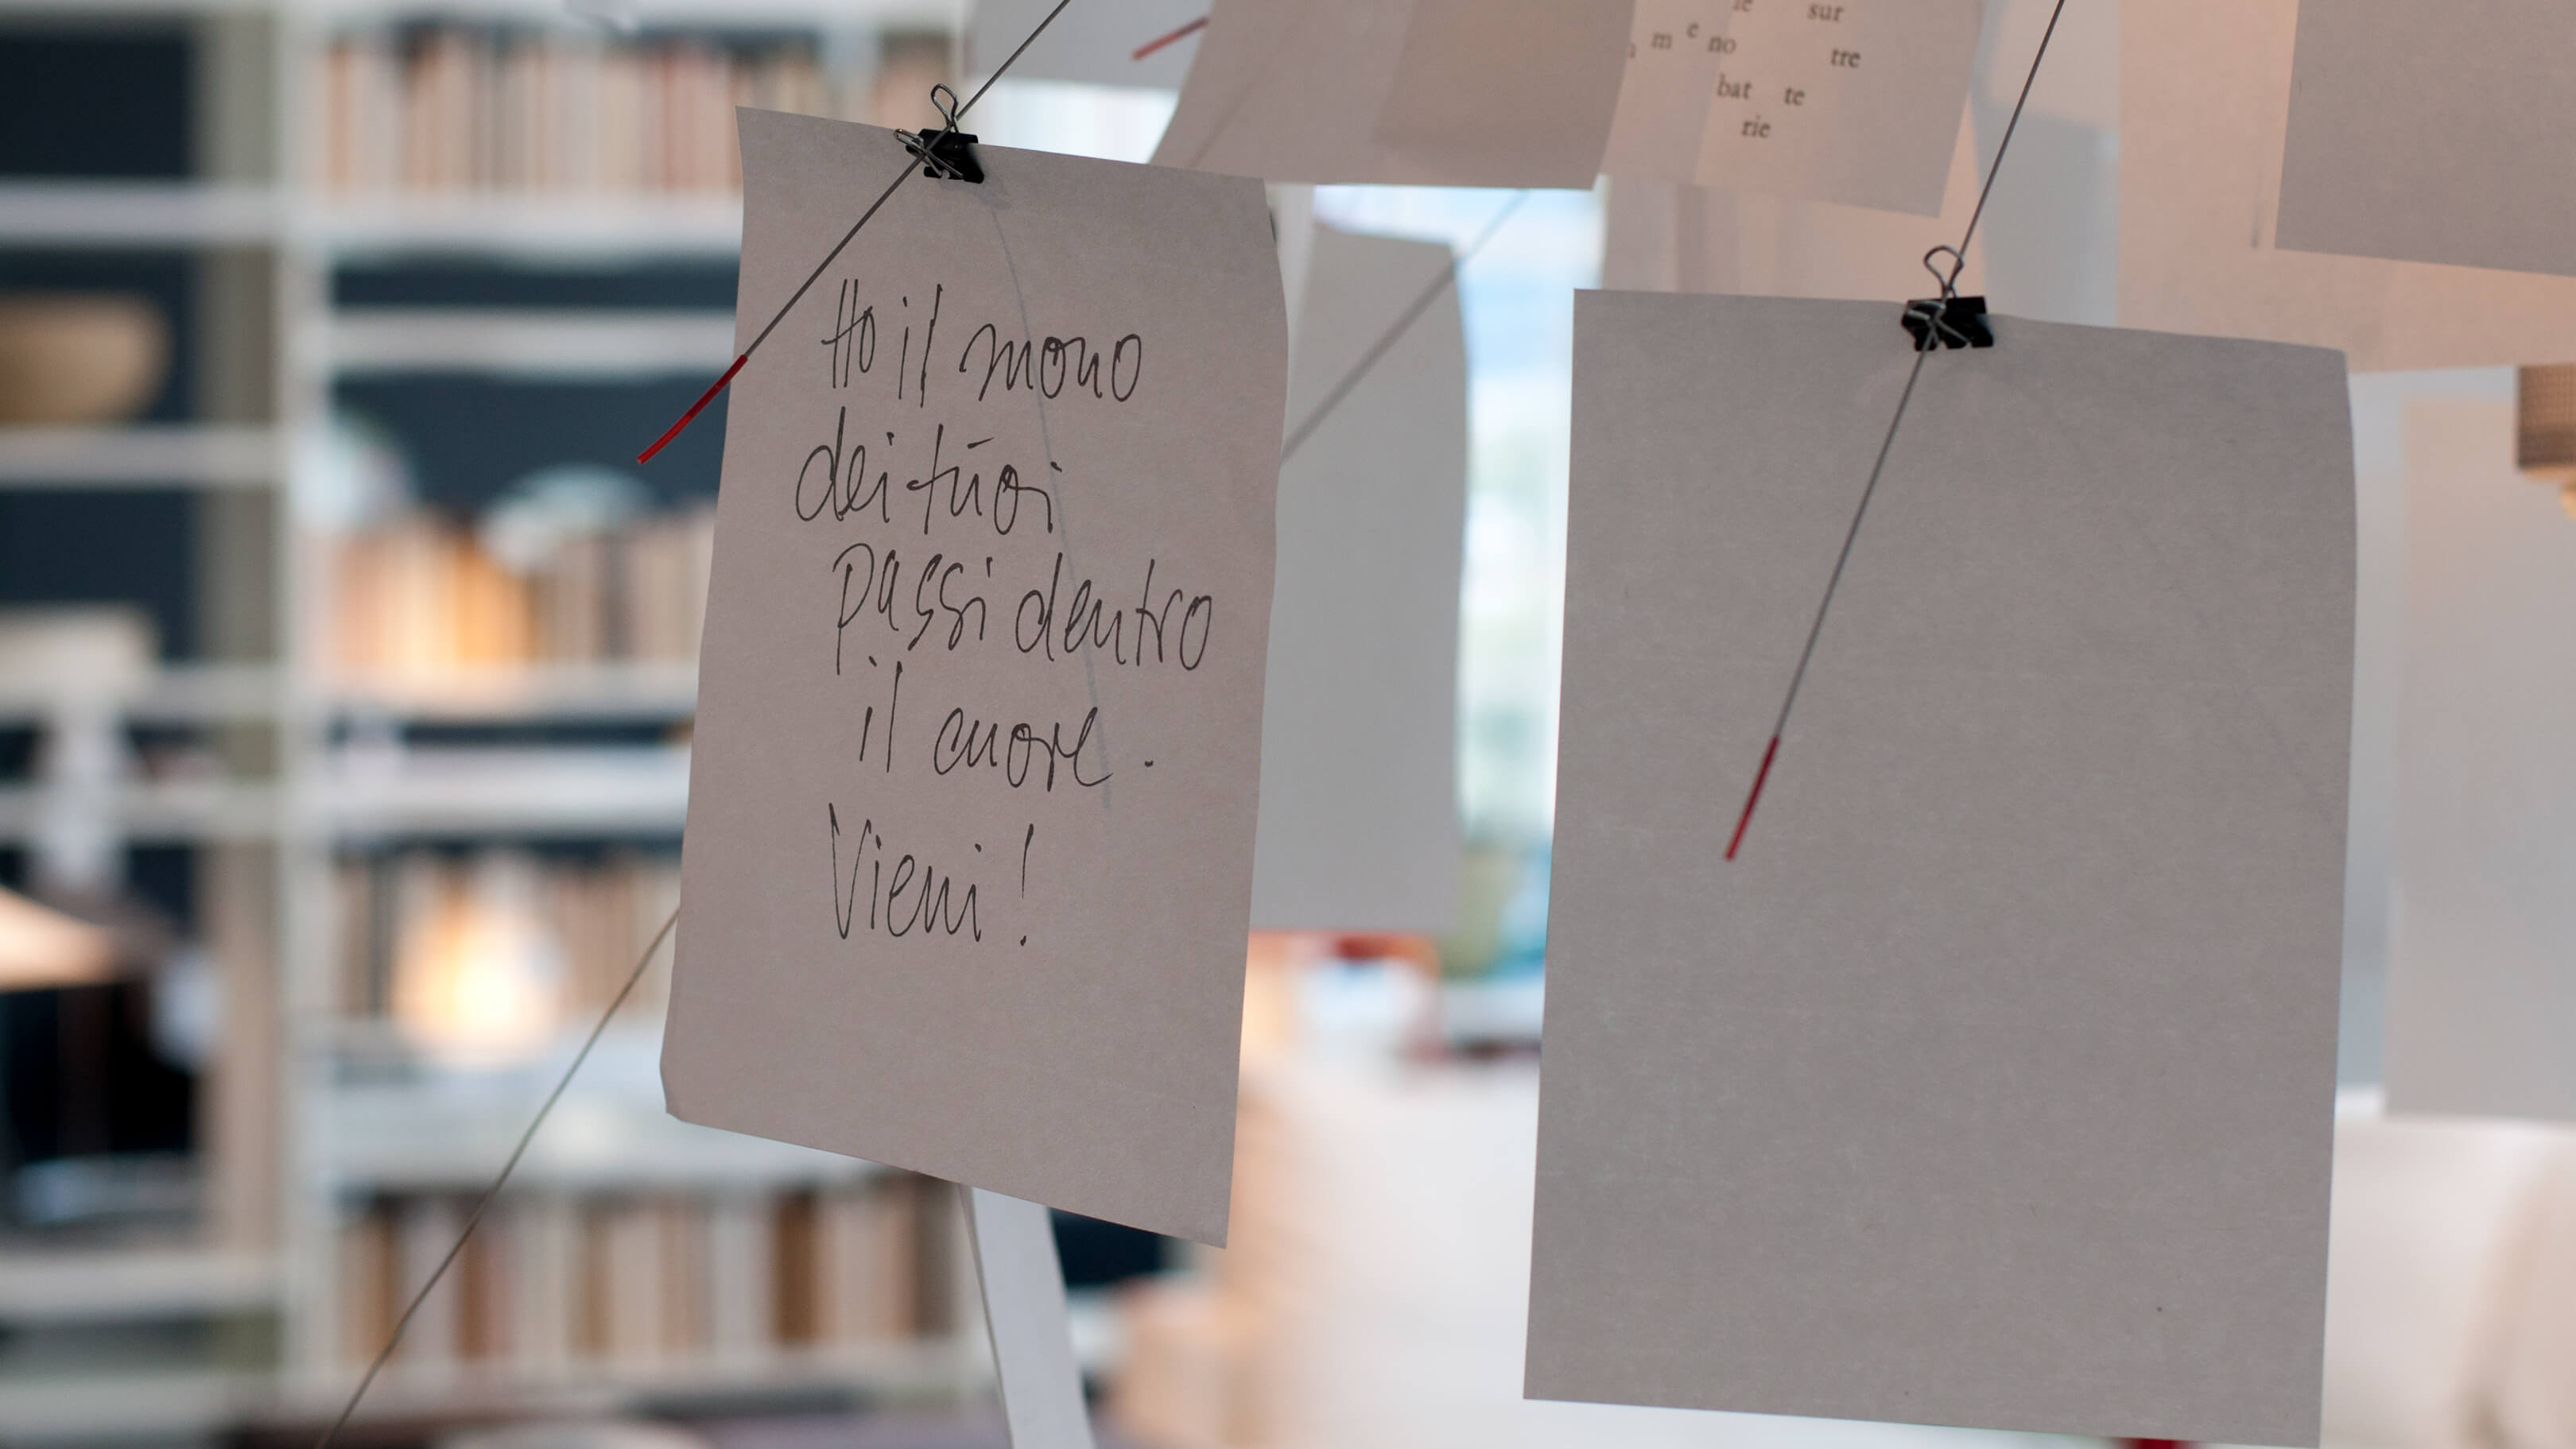 sur
m e no tre
bat te
rie
Ho il mono
dei tuoi
passi dentro
il cuore.
Vieni!